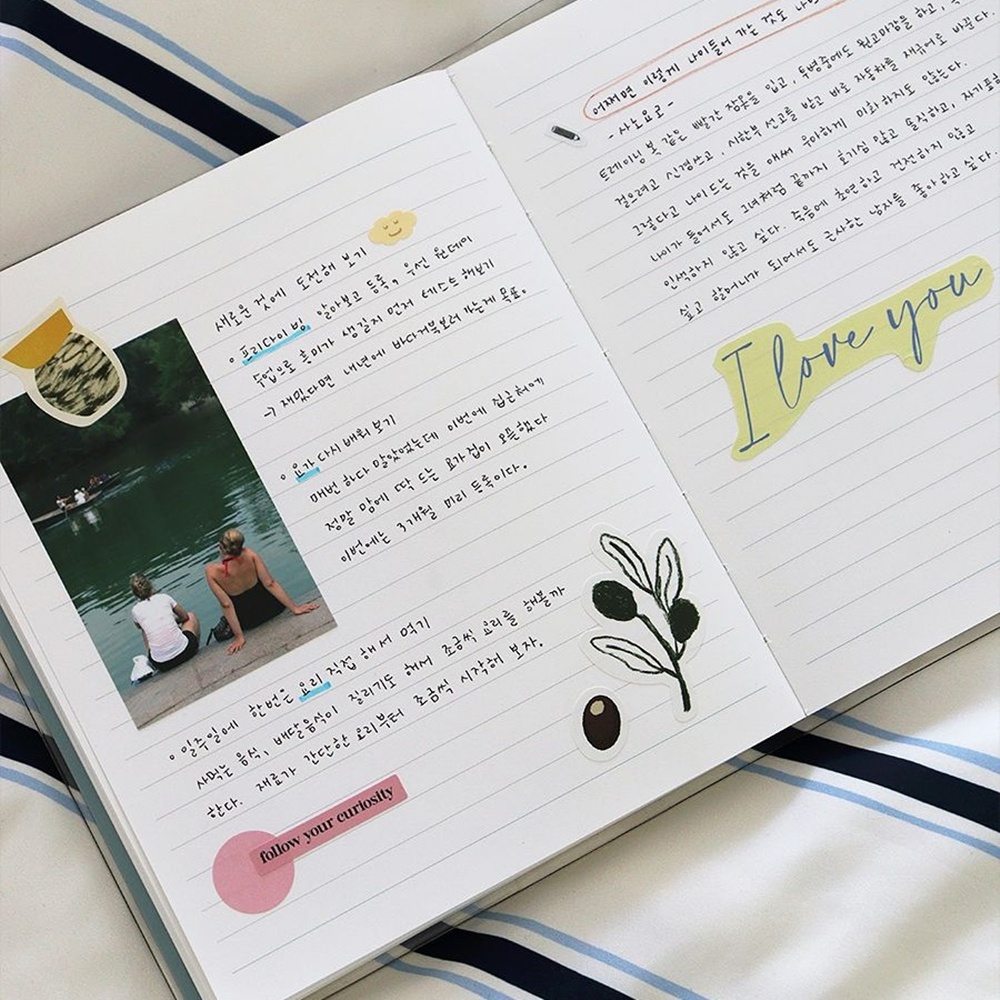 새로운 것에 도전해 보기
프리다이빙 알아보고 등록, 우선 원데이
수업으로 흥미가 생길지 먼저 테스트해보기
→ 재밌다면 내년에 바다거북보러 가는게 목표.
요가 다시 배워보기
매번 하다 말았었는데 이번에 집근처에
정말 맘에 딱 드는 요가집이 오픈했다
이번에는 3개월 미리 등록이다.
일주일에 한번은 요리 직접 해서 먹기
사먹는 음식, 배달음식이 질리기도 해서 조금씩 요리를 해볼까
한다. 재료가 간단한 요리부터 조금씩 시작해 보자.
follow your curiosity
어쩌면 이렇게 나이들어 가는 것도
- 사노요코 -
트레이닝 복 같은 빨간 잠옷을 입고, 투병중에도 원고마감을 하고,
걸으려고 신경쓰고, 시한부 선고를 받고 바로 자동차를 재규어로 바꾼다.
그렇다고 나이드는 것을 애써 우아하게 미화하지도 않는다.
나이가 들어서도 그녀처럼 끝까지 호기심 많고 솔직하고,
인색하지 않고 싶다. 죽음에 초연하고 건전하지 않고
싶고 할머니가 되어서도 근사한 남자를 좋아하고 싶다.
I love you